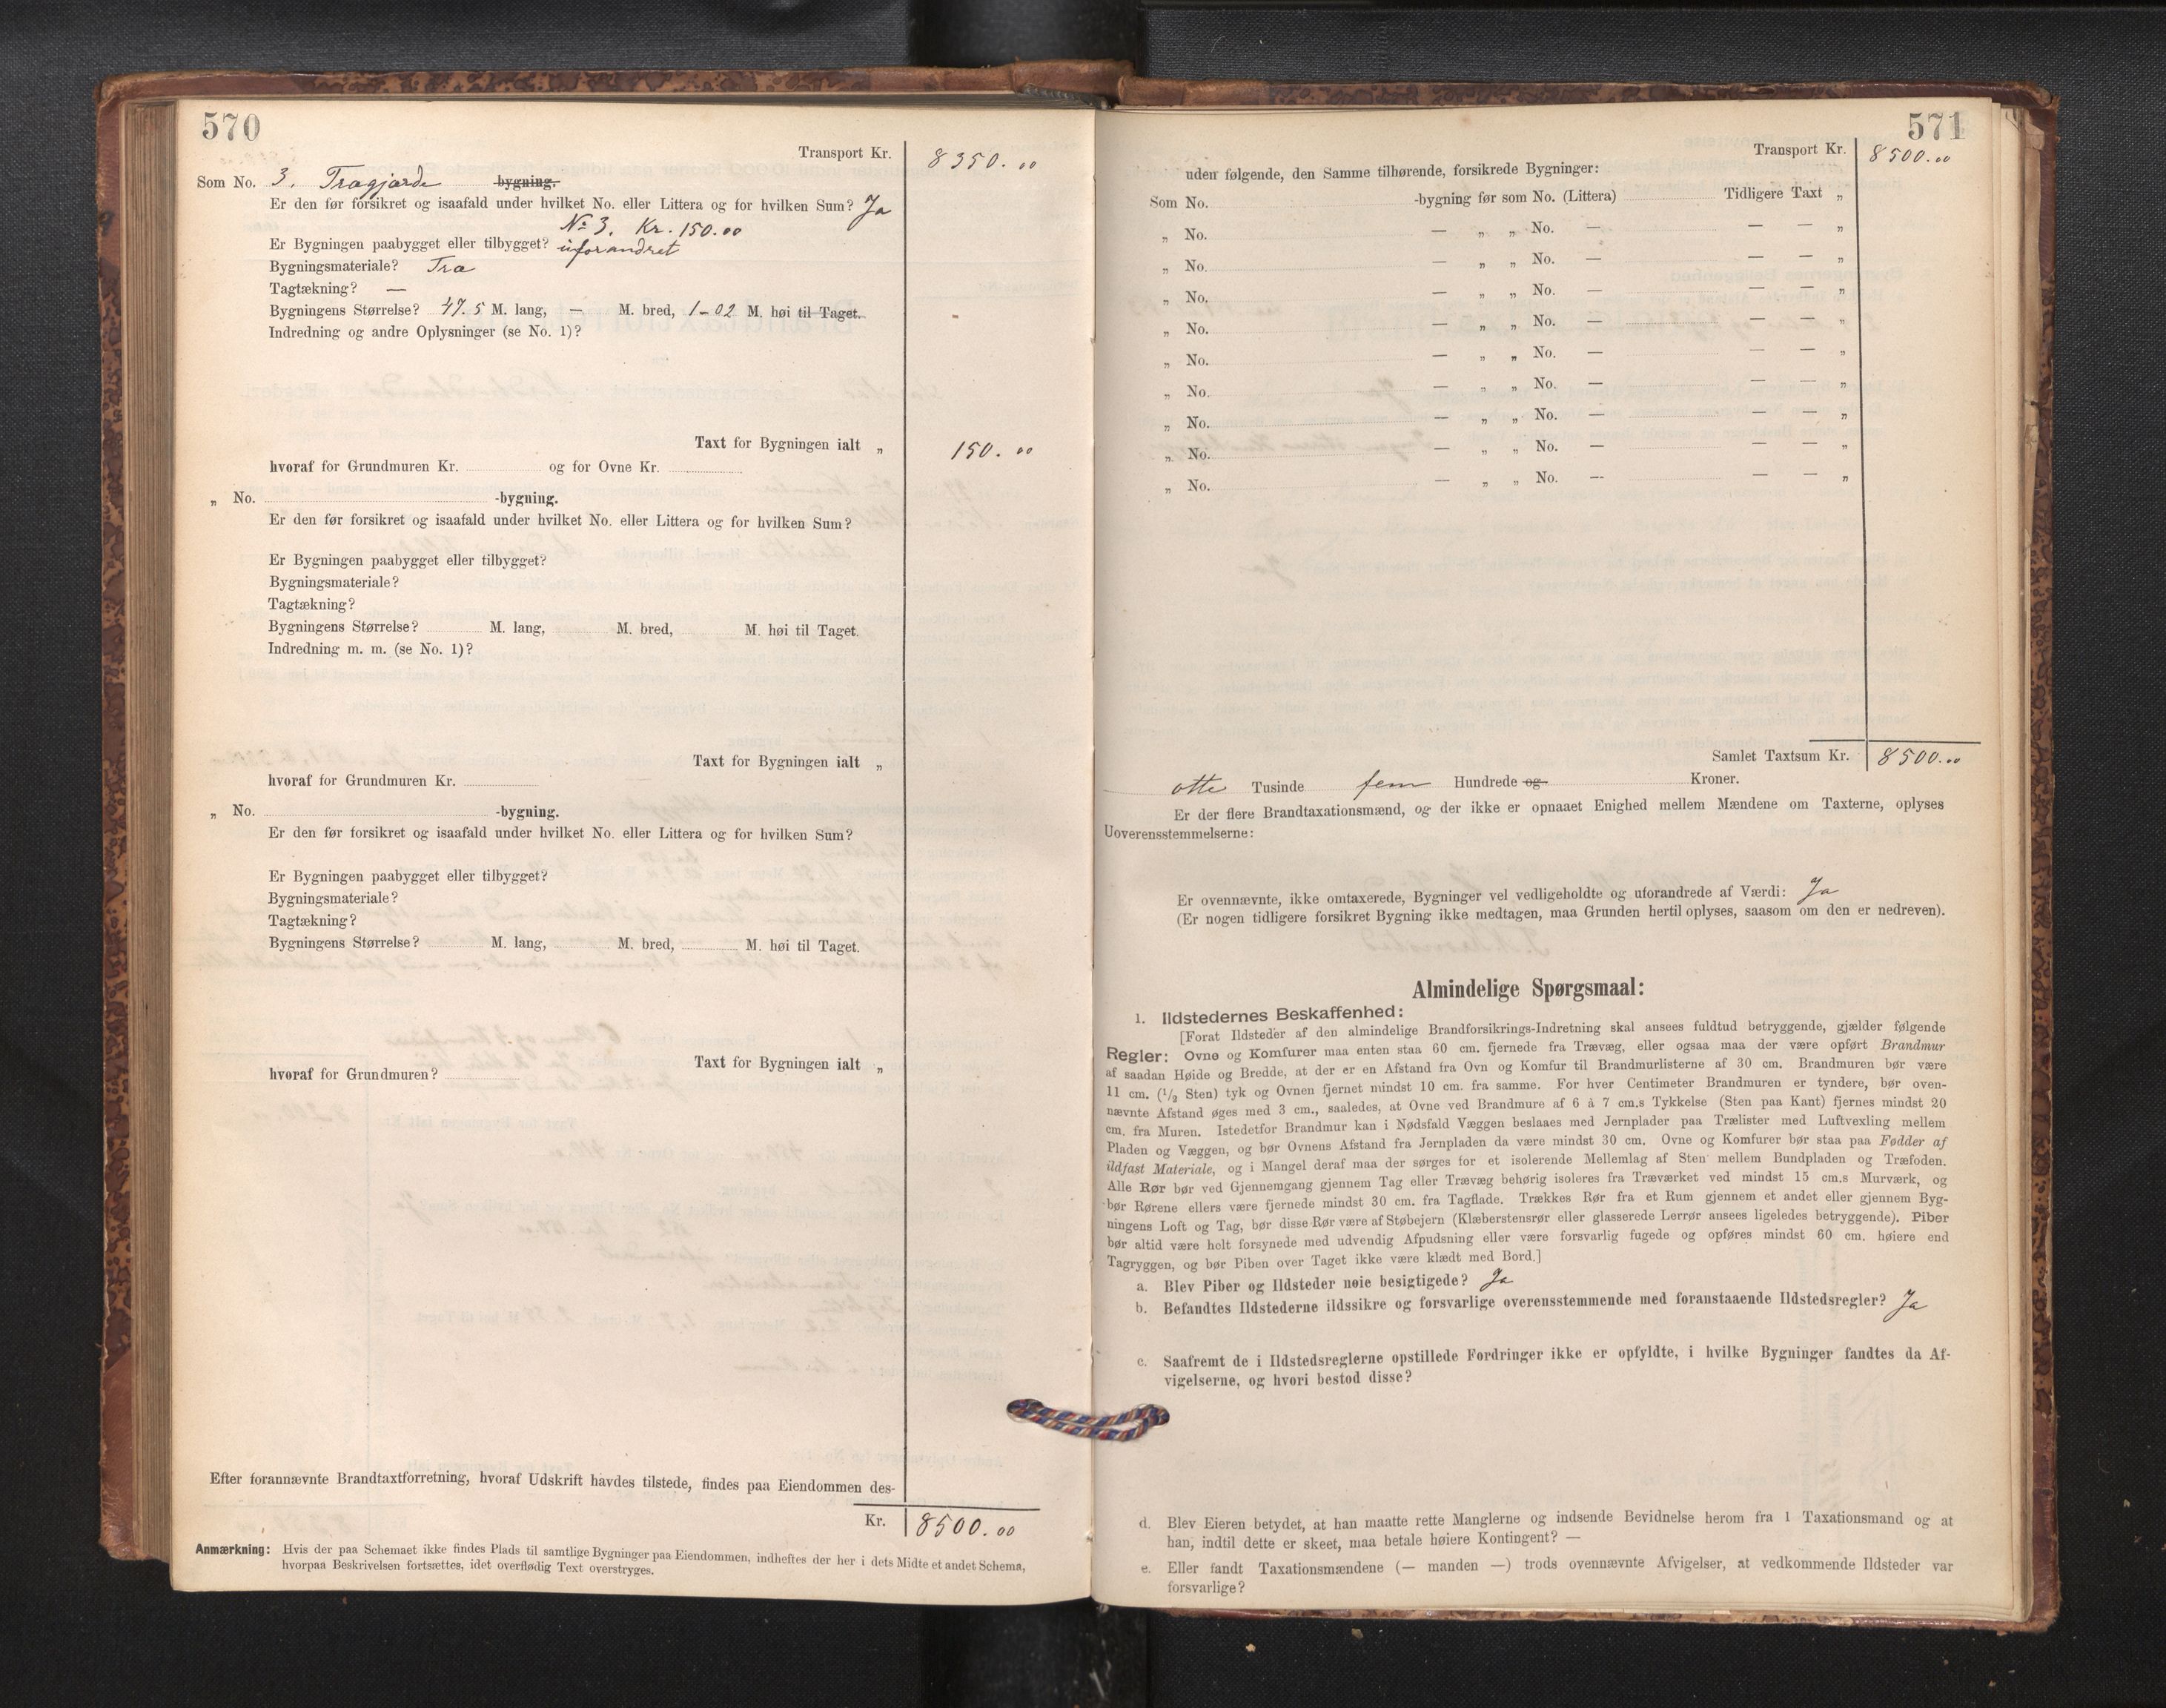 570
Transport Kr. 8350.00
Som No. 3. Trægjærde bygning.
Er den før forsikret og isaafald under hvilket No. eller Littera og for hvilken Sum? Ja
No 3. Kr. 150.00
Er Bygningen paabygget eller tilbygget? uforandret
Bygningsmateriale? Træ
Tagtækning? —
Bygningens Størrelse? 47.5 M. lang, — M. bred, 1-02 M. høi til Taget.
Indredning og andre Oplysninger (se No. 1)?
Taxt for Bygningen ialt „ 150.00
hvoraf for Grundmuren Kr. og for Ovne Kr.
„ No. -bygning.
Er den før forsikret og isaafald under hvilket No. eller Littera og for hvilken Sum?
Er Bygningen paabygget eller tilbygget?
Bygningsmateriale?
Tagtækning?
Bygningens Størrelse? M. lang, M. bred, M. høi til Taget.
Indredning m. m. (se No. 1)?
Taxt for Bygningen ialt „
hvoraf for Grundmuren Kr.
„ No. -bygning.
Er den før forsikret og isaafald under hvilket No. eller Littera og for hvilken Sum?
Er Bygningen paabygget eller tilbygget?
Bygningsmateriale?
Tagtækning?
Bygningens Størrelse? M. lang, M. bred, M. høi til Taget.
Taxt for Bygningen ialt „
hvoraf for Grundmuren?
Efter forannævnte Brandtaxtforretning, hvoraf Udskrift havdes tilstede, findes paa Eiendommen des-
Kr. 8500.00
Anmærkning: Hvis der paa Schemaet ikke findes Plads til samtlige Bygninger paa Eiendommen, indheftes der her i dets Midte et andet Schema,
hvorpaa Beskrivelsen fortsættes, idet overflødig Text overstryges.
571
Transport Kr. 8500.00
uden følgende, den Samme tilhørende, forsikrede Bygninger:
Som No. -bygning før som No. (Littera) Tidligere Taxt „
„ No. — „ „ No. — — — „
„ No. — „ „ No. — — — „
„ No. — „ „ No. — — — „
„ No. — „ „ No. — — — „
„ No. — „ „ No. — — — „
„ No. — „ „ No. — — — „
„ No. — „ „ No. — — — „
„ No. — „ „ No. — — — „
„ No. — „ „ No. — — — „
Samlet Taxtsum Kr. 8500.00
otte Tusinde fem Hundrede og Kroner.
Er der flere Brandtaxationsmænd, og der ikke er opnaaet Enighed mellem Mændene om Taxterne, oplyses
Uoverensstemmelserne:
Er ovennævnte, ikke omtaxerede, Bygninger vel vedligeholdte og uforandrede af Værdi: Ja
(Er nogen tidligere forsikret Bygning ikke medtagen, maa Grunden hertil oplyses, saasom om den er nedreven).
Almindelige Spørgsmaal:
1. Ildstedernes Beskaffenhed:
[Forat Ildsteder af den almindelige Brandforsikrings-Indretning skal ansees fuldtud betryggende, gjælder følgende
Regler: Ovne og Komfurer maa enten staa 60 cm. fjernede fra Trævæg, eller ogsaa maa der være opført Brandmur
af saadan Høide og Bredde, at der er en Afstand fra Ovn og Komfur til Brandmurlisterne af 30 cm. Brandmuren bør være
11 cm. (1/2 Sten) tyk og Ovnen fjernet mindst 10 cm. fra samme. For hver Centimeter Brandmuren er tyndere, bør oven-
nævnte Afstand øges med 3 cm., saaledes, at Ovne ved Brandmure af 6 à 7 cm.s Tykkelse (Sten paa Kant) fjernes mindst 20
cm. fra Muren. Istedetfor Brandmur kan i Nødsfald Væggen beslaaes med Jernplader paa Trælister med Luftvexling mellem
Pladen og Væggen, og bør Ovnens Afstand fra Jernpladen da være mindst 30 cm. Ovne og Komfurer bør staa paa Fødder af
ildfast Materiale, og i Mangel deraf maa der sørges for et isolerende Mellemlag af Sten mellem Bundpladen og Træfoden.
Alle Rør bør ved Gjennemgang gjennem Tag eller Trævæg behørig isoleres fra Træværket ved mindst 15 cm.s Murværk, og
bør Rørene ellers være fjernede mindst 30 cm. fra Tagflade. Trækkes Rør fra et Rum gjennem et andet eller gjennem Byg-
ningens Loft og Tag, bør disse Rør være af Støbejern (Klæberstensrør eller glasserede Lerrør ansees ligeledes betryggende). Piber
bør altid være helt forsynede med udvendig Afpudsning eller være forsvarlig fugede og opføres mindst 60 cm. høiere end
Tagryggen, og bør Piben over Taget ikke være klædt med Bord.]
a. Blev Piber og Ildsteder nøie besigtigede? Ja
b. Befandtes Ildstederne ildssikre og forsvarlige overensstemmende med foranstaaende Ildstedsregler? Ja
c. Saafremt de i Ildstedsreglerne opstillede Fordringer ikke er opfyldte, i hvilke Bygninger fandtes da Af-
vigelserne, og hvori bestod disse?
d. Blev Eieren betydet, at han maatte rette Manglerne og indsende Bevidnelse herom fra 1 Taxationsmand og at
han, indtil dette er skeet, maa betale høiere Kontingent? —
e. Eller fandt Taxationsmændene (— manden —) trods ovennævnte Afvigelser, at vedkommende Ildsteder var
forsvarlige?